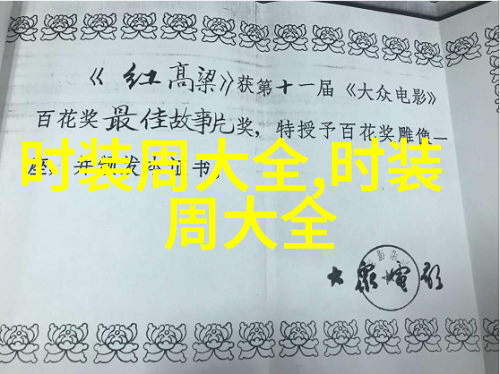 《红高粱》获第十一届《大众电影》
百花奖最佳故事片奖，特授予百花奖雕像一
座，并颁发证书。
时装周大全,时装
周大全
大众电影